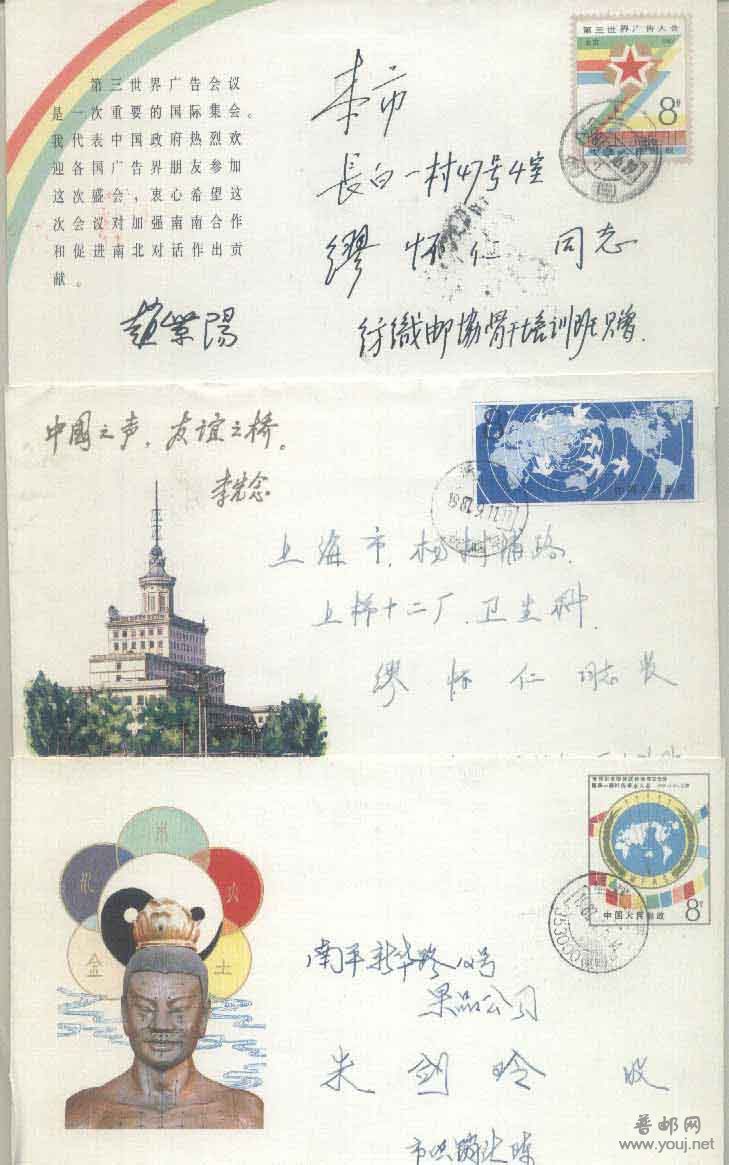 第三世界广告会议
是一次重要的国际集会。
我代表中国政府热烈欢
迎各国广告界朋友参加
这次盛会，衷心希望这
次会议对加强南南合作
和促进南北对话作出贡
献。
赵紫陽
第三世界广告大会
北京
8分
本市
長白一村47号4室
缪怀仁 同志
纺織邮协骨干培训班贈
中國之声，友谊之桥。
李先念
8
上海市.杨树浦路.
上棉十二厂.卫生科.
缪怀仁 同志收
中国人民邮政
8分
353000
水
火
土
金
南平新华路12号
果品公司
朱剑玲 收
普邮网
www.youj.net